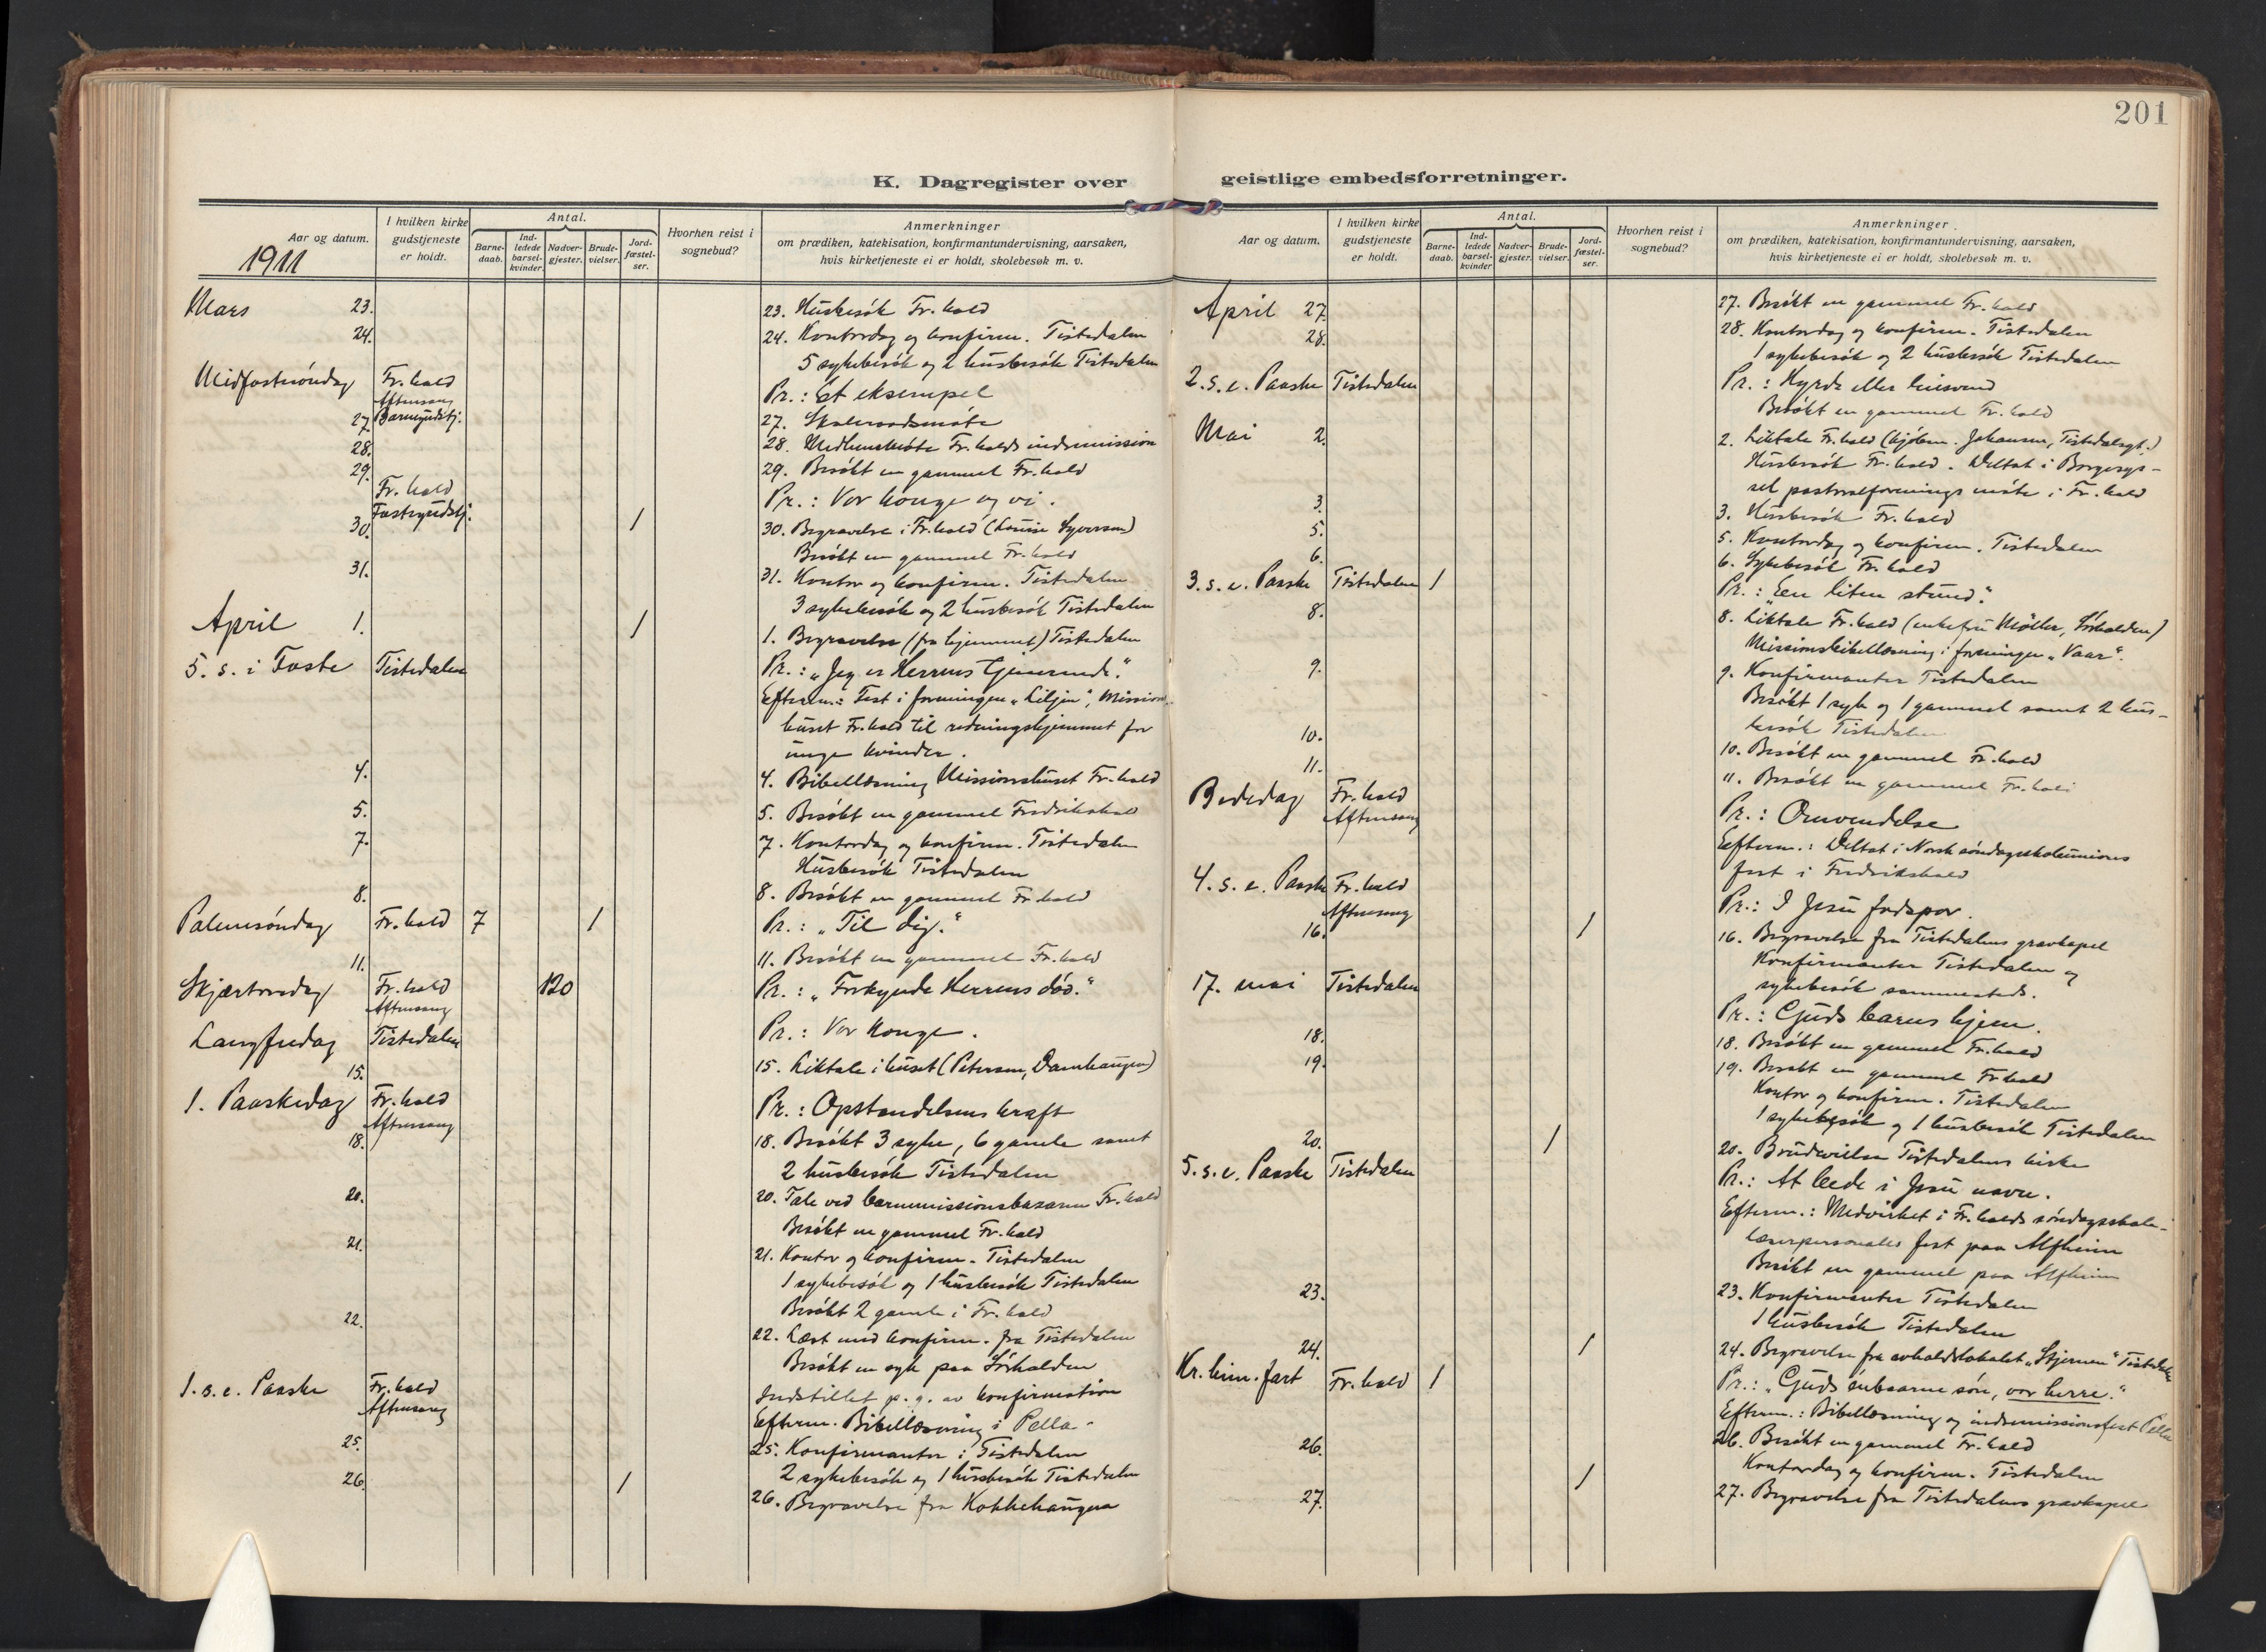 201
K. Dagregister over geistlige embedsforretninger.
Aar og datum.
1911
I hvilken kirke gudstjeneste er holdt.
Antal.
Barne-daab.
Ind-ledede barsel-kvinder.
Nadver-gjester.
Brude-vielser.
Jord-fæstel-ser.
Hvorhen reist i sognebud?
Anmerkninger
om prædiken, katekisation, konfirmantundervisning, aarsaken,
hvis kirketjeneste ei er holdt, skolebesøk m. v.
Mars 23. 23. Husbesök Fr.hald
24. 24. Kontordag og konfirm. Tistedalen
5 sykebesök og 2 husbesök Tistedalen
Midfastesöndag Fr.hald Aftensang Pr.: Et eksempel
27. Barnegudstj. 27. Skoleraadsmöte
28. 28. Medlemsmöte Fr.halds indremission
29. 29. Besökt en gammel Fr.hald
Fr.hald Fastegudstj. Pr.: Vor konge og vi.
30. 1 30. Begravelse i Fr.hald (Louise Syversen)
Besökt en gammel Fr.hald
31. 31. Kontor og konfirm. Tistedalen
3 sykebesök og 2 husbesök Tistedalen
April 1. 1 1. Begravelse (fra hjemmet) Tistedalen
5. s. i Faste Tistedalen Pr.: „Jeg er Herrens tjenerinde."
Efterm.: Fest i foreningen „Liljen", Missions-
huset Fr.hald til redningshjemmet for
unge kvinder.
4. 4. Bibellæsning Missionshuset Fr.hald
5. 5. Besökt en gammel Fredrikshald
7. 7. Kontordag og konfirm. Tistedalen
Husbesök Tistedalen
8. 8. Besökt en gammel Fr.hald
Palmesöndag Fr.hald 7 1 Pr.: „Til dig."
11. 11. Besökt en gammel Fr.hald
Skjærtorsdag Fr.hald Aftensang 120 Pr.: „Forkynde Herrens död."
Langfredag Tistedalen Pr.: Vor Konge.
15. 15. Liktale i huset (Petersen, Damhaugen)
1. Paaskedag Fr.hald Aftensang Pr.: Opstandelsens kraft
18. 18. Besökt 3 syke, 6 gamle samt
2 husbesök Tistedalen
20. 20. Tale ved barnemissionsbasaren Fr.hald
Besökt en gammel Fr.hald
21. 21. Kontor og konfirm. Tistedalen
1 sykebesök og 1 husbesök Tistedalen
Besökt 2 gamle i Fr.hald
22. 22. Læst med konfirm. fra Tistedalen
Besökt en syk paa Sörhalden
1. s. e. Paaske Fr.hald Aftensang Indstillet p. g. av konfirmation
Efterm. Bibellæsning i Pella.
25. 25. Konfirmanter i Tistedalen
2 sykebesök og 1 husbesök Tistedalen
26. 1 26. Begravelse fra Kokkehaugen
Aar og datum.
I hvilken kirke gudstjeneste er holdt.
Antal.
Barne-daab.
Ind-ledede barsel-kvinder
Nadver-gjester.
Brude-vielser.
Jord-fæstel-ser.
Hvorhen reist i sognebud?
Anmerkninger
om prædiken, katekisation, konfirmantundervisning, aarsaken,
hvis kirketjeneste ei er holdt, skolebesøk m. v.
April 27. 27. Besökt en gammel Fr.hald
28. 28. Kontordag og konfirm. Tistedalen
1 sykebesök og 2 husbesök Tistedalen
2. s. e. Paaske Tistedalen Pr.: Hyrde eller leiesvend
Besökt en gammel Fr.hald
Mai 2. 2. Liktale Fr.hald (kjöbm. Johansen, Tistedalsgt.)
Husbesök Fr.hald. Deltat i Borgesys-
sel pastoralforenings möte i Fr.hald
3. 3. Husbesök Fr.hald
5. 5. Kontordag og konfirm. Tistedalen
6. 6. Sykebesök Fr.hald
3. s. e. Paaske Tistedalen 1 Pr.: „Een liten stund."
8. 8. Liktale Fr.hald (enkefru Möller, Sörhalden)
Missionsbibellæsning i foreningen „Vaar".
9. 9. Konfirmanter Tistedalen
Besökt 1 syk og 1 gammel samt 2 hus-
besök Tistedalen
10. 10. Besökt en gammel Fr.hald
11. 11. Besökt en gammel Fr.hald
Bededag Fr.hald Aftensang Pr.: Omvendelse
Efterm.: Deltat i Norsk söndagsskoleunions
fest i Fredrikshald
4. s. e. Paaske Fr.hald Aftensang Pr.: I Jesu fodspor.
16. 1 16. Begravelse fra Tistedalens gravkapel
Konfirmanter Tistedalen og
sykebesök sammesteds.
17. mai Tistedalen Pr.: Guds barns hjem.
18. 18. Besökt en gammel Fr.hald
19. 19. Besökt en gammel Fr.hald
Kontor og konfirm. Tistedalen
1 sykebesök og 1 husbesök Tistedalen
20. 1 20. Brudevielse Tistedalens kirke
5. s. e. Paaske Tistedalen Pr.: At bede i Jesu navn.
Efterm.: Medvirket i Fr.halds söndagsskole-
lærerpersonales fest paa Alfheim
Besökt en gammel paa Alfheim
23. 23. Konfirmanter Tistedalen
1 husbesök Tistedalen
24. 1 24. Begravelse fra avholdslokalet „Stjernen" Tistedalen
Kr. him. fart Fr.hald 1 Pr.: „Guds enbaarne sön, vor herre."
Efterm.: Bibellæsning og indremissionsfest Pella
26. 26. Besökt en gammel Fr.hald
Kontordag og konfirm. Tistedalen
27. 1 27. Begravelse fra Tistedalens gravkapel